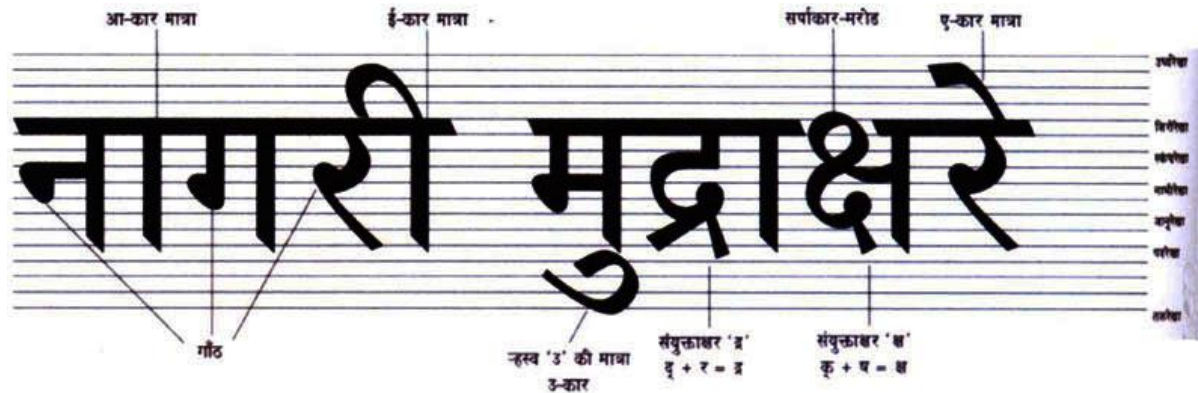 आ-कार मात्रा ई-कार मात्रा सर्पाकार-मरोड ए-कार मात्रा
ऊर्ध्वरेखा
नागरी मुद्राक्षरे
शिरोरेखा
स्कंधरेखा
नाभीरेखा
जानुरेखा
पदरेखा
तलरेखा
गाँठ
ऱ्हस्व 'उ' की मात्रा
उ-कार
संयुक्ताक्षर 'द्र'
द् + र = द्र
संयुक्ताक्षर 'क्ष'
क् + ष = क्ष